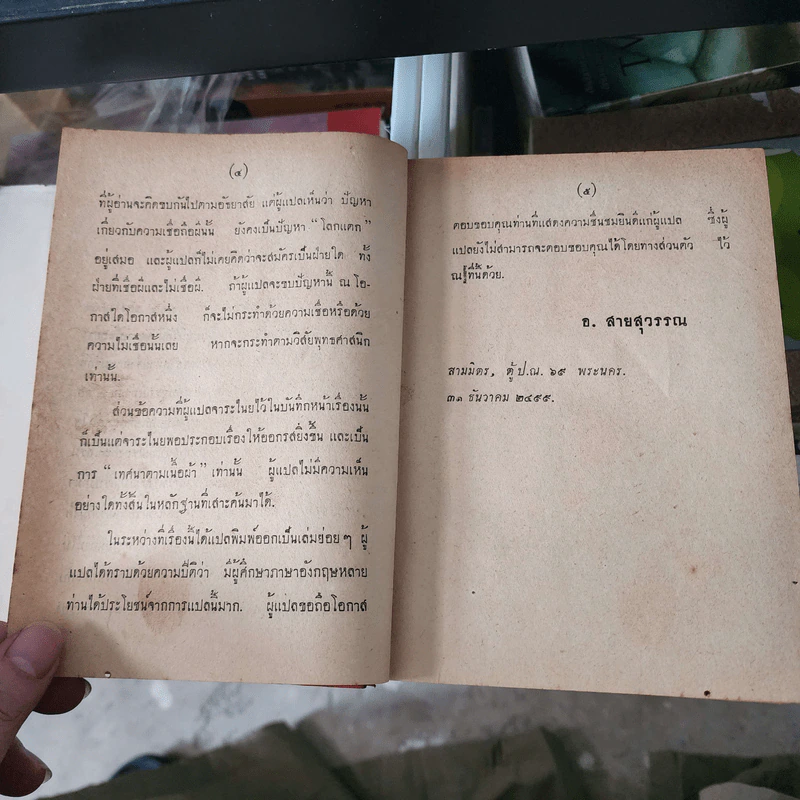 (๔)
ที่ผู้อ่านจะคิดขบกันไปตามอัธยาศัย แต่ผู้แปลเห็นว่า ปัญหา
เกี่ยวกับความเชื่อถือผีนั้น ยังคงเป็นปัญหา “โลกแตก”
อยู่เสมอ และผู้แปลก็ไม่เคยคิดว่าจะสมัครเป็นฝ่ายใด ทั้ง
ฝ่ายที่เชื่อผีและไม่เชื่อผี. ถ้าผู้แปลจะขบปัญหานี้ ณ โอ-
กาสใดโอกาสหนึ่ง ก็จะไม่กระทำด้วยความเชื่อหรือด้วย
ความไม่เชื่อนั้นเลย หากจะกระทำตามวิสัยพุทธศาสนิก
เท่านั้น.
ส่วนข้อความที่ผู้แปลจาระไนยไว้ในบันทึกหน้าเรื่องนั้น
ก็เป็นแต่จาระไนยพอประกอบเรื่องให้ออกรสยิ่งขึ้น และเป็น
การ “เทศนาตามเนื้อผ้า” เท่านั้น ผู้แปลไม่มีความเห็น
อย่างใดทั้งสิ้นในหลักฐานที่เสาะค้นมาได้.
ในระหว่างที่เรื่องนี้ได้แปลพิมพ์ออกเป็นเล่มย่อยๆ ผู้
แปลได้ทราบด้วยความปีติว่า มีผู้ศึกษาภาษาอังกฤษหลาย
ท่านได้ประโยชน์จากการแปลนี้มาก. ผู้แปลขอถือโอกาส
(๕)
ตอบขอบคุณท่านที่แสดงความชื่นชมยินดีแก่ผู้แปล ซึ่งผู้
แปลยังไม่สามารถจะตอบขอบคุณได้โดยทางส่วนตัว ไว้
ณที่นี้ด้วย.
อ. สายสุวรรณ
สามมิตร, ตู้ป.ณ. ๖๙ พระนคร.
๓๑ ธันวาคม ๒๔๙๕.